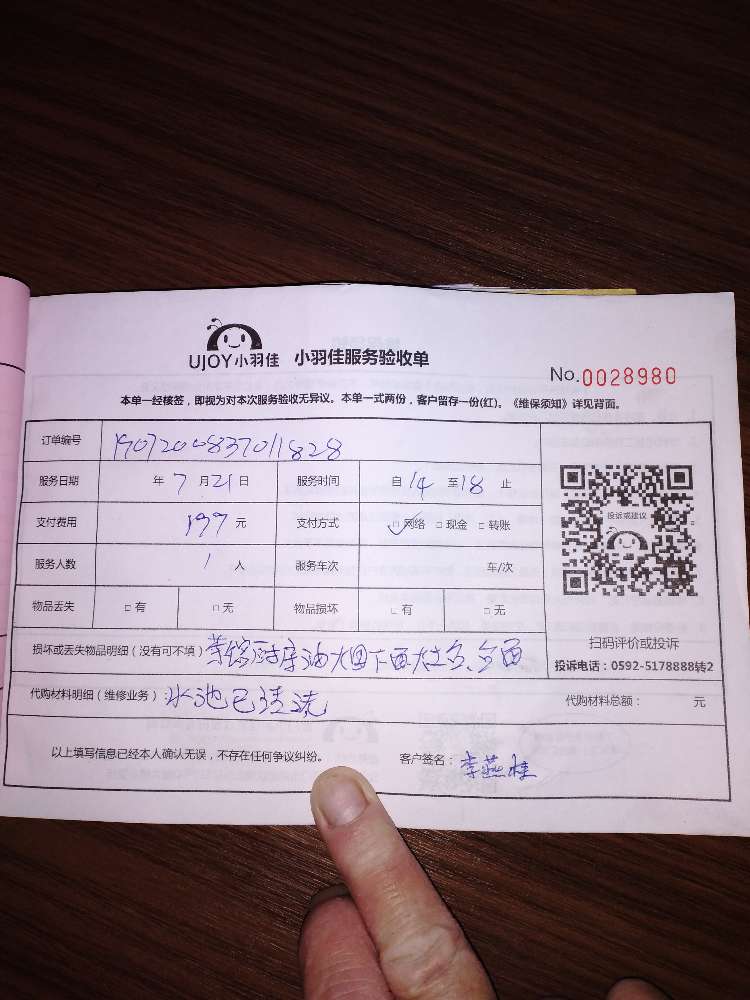 UJOY小羽佳 小羽佳服务验收单
No.0028980
本单一经核签，即视为对本次服务验收无异议。本单一式两份，客户留存一份(红)。《维保须知》详见背面。
订单编号 190720083701828
服务日期 年 7 月 21 日 服务时间 自 14 至 18 止
支付费用 197 元 支付方式 ☑ 网络 □ 现金 □ 转账
投诉或建议
服务人数 1 人 服务车次 车/次
物品丢失 □ 有 □ 无 物品损坏 □ 有 □ 无
扫码评价或投诉
损坏或丢失物品明细（没有可不填） 厨房油烟 下面灶台、台面
投诉电话：0592-5178888转2
代购材料明细（维修业务）：水池已清洗 代购材料总额： 元
以上填写信息已经本人确认无误，不存在任何争议纠纷。 客户签名：李燕桂